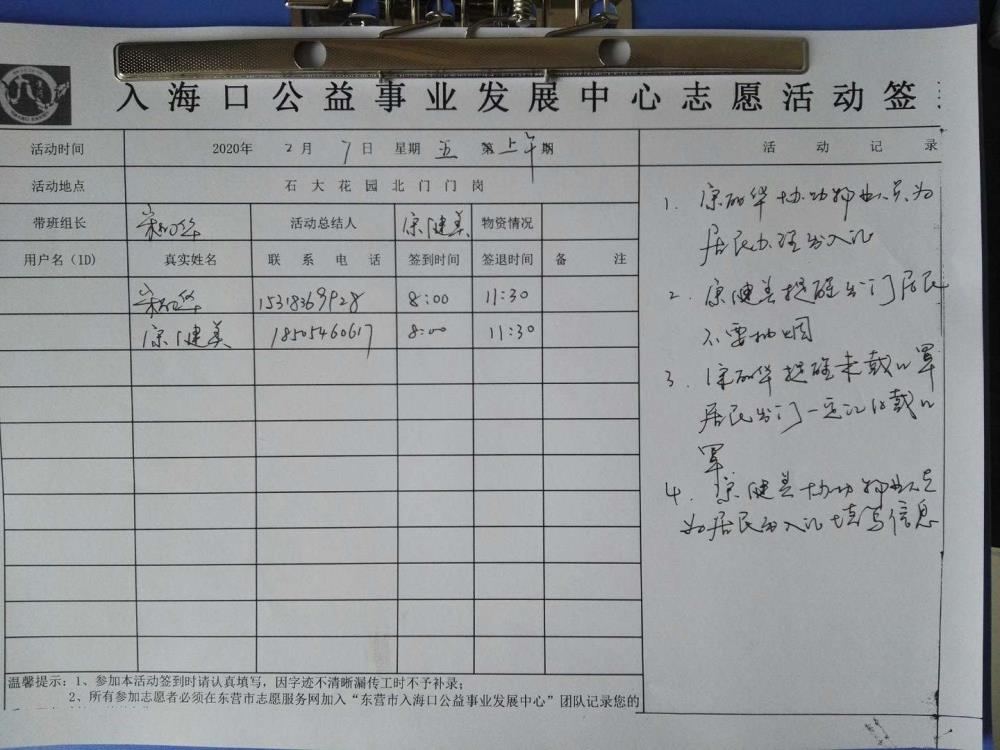 入海口公益事业发展中心志愿活动签
活动时间 2020年 2月 7日 星期五 第上午期 活动记录
活动地点 石大花园北门门岗
带班组长 活动总结人 健美 物资情况
用户名（ID） 真实姓名 联系电话 签到时间 签退时间 备注
15318369928 8:00 11:30
健美 18505460617 8:00 11:30
1. 丽华协助物业人员为
居民办理出入证
2. 健美提醒出门居民
不要抽烟
3. 丽华提醒未戴口罩
居民出门一定记得戴口
罩
4. 健美协助物业人员
为居民出入证填写信息
温馨提示：1、参加本活动签到时请认真填写，因字迹不清晰漏传工时不予补录；
2、所有参加志愿者必须在东营市志愿服务网加入“东营市入海口公益事业发展中心”团队记录您的